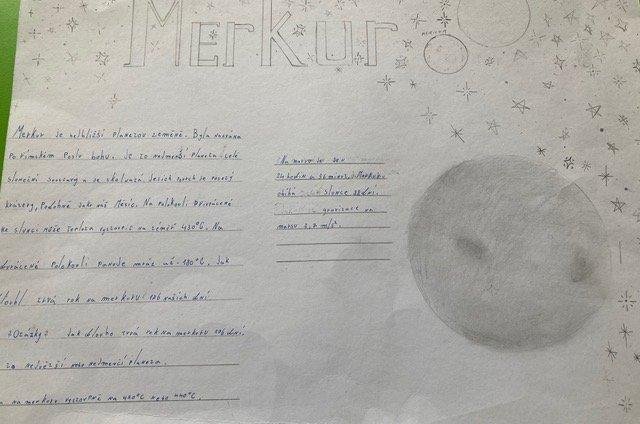 Merkur
MERKUR
Merkur je nejbližší planetou zeměně. Byla nazvána
Po římském Poslu bohů. Je to nejmenší Planeta celé
sluneční soustavy a se skalnatá. Jejich povrch se
krátery, Podobně jako náš Měsíc. Na Polokouli Přivrácené
ke slunci může teplota vystoupit na téměř 430°C. Na
odvrácené Polokouli panuje mráz až -180°C. Jak
trvá rok na merkuru 176 našich dní
Otázky Jak dlouho trvá rok na merkuru 176 dní.
největší nebo nejmenčí planeta.
na merkuru na 430°C nebo 440°C.
Na marsu je den
24 hodin a 36 minut, Merkuru
obíhá slunce 88 dní.
gravitace na
marsu 3,7 m/s².